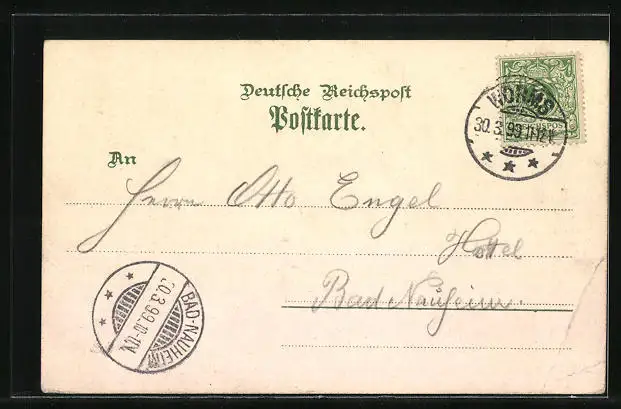 Deutsche Reichspost
Postkarte.
WORMS
30.3.99.11-12V.
REICHSPOST
An
Herrn Otto Engel
Hotel
Bad Nauheim
BAD-NAUHEIM
30.3.99.10-11N.